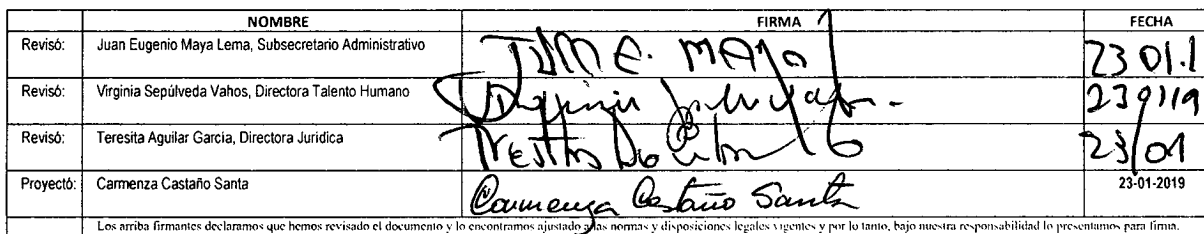 NOMBRE FIRMA FECHA
Revisó: Juan Eugenio Maya Lema, Subsecretario Administrativo JUAN E. MAYA 23 01.1
Revisó: Virginia Sepúlveda Vahos, Directora Talento Humano Virginia 230119
Revisó: Teresita Aguilar Garcia, Directora Jurídica 23/01
Proyectó: Carmenza Castaño Santa Carmenza Castaño Santa 23-01-2019
Los arriba firmantes declaramos que hemos revisado el documento y lo encontramos ajustado a las normas y disposiciones legales vigentes y por lo tanto, bajo nuestra responsabilidad lo presentamos para firma.